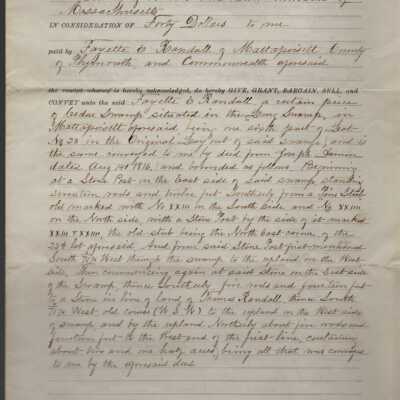 Massachusetts
IN CONSIDERATION OF Forty Dollars to me
paid by Fayette C Randall of Mattapoisett County
of Plymouth and Commonwealth aforesaid
the receipt whereof is hereby acknowledged, do hereby GIVE, GRANT, BARGAIN, SELL, and
CONVEY unto the said Fayette C Randall a certain piece
of Cedar Swamp situated in the Long Swamp, in
Mattapoisett aforesaid being one sixth part of Lot
No 23 in the Original Lay out of said Swamp, and is
the same conveyed to me by deed from Joseph
dated Aug 1816, and bounded as follows. Beginning
at a Stone Post on the East side of said swamp standing
seventeen rods and twelve feet southerly from a Pine Stub
old marked with No XXIII on the South Side and No XXIIII
on the North side, with a Stone Post by the side of it marked
the old stub being the North East corner of the
23d lot aforesaid. And from said Stone Post first mentioned
South West through the swamp to the upland on the West
side, then commencing again at said stone on the East side
of the Swamp, thence southerly five rods and fourteen feet
to a Stone in line of land of James Randall, thence South
West old course (W.S.W) to the upland on the West side
of swamp and by the upland Northerly about five rods and
fourteen feet to the West end of the first line, containing
about two and one half acres, being all that was conveyed
to me by the aforesaid deed